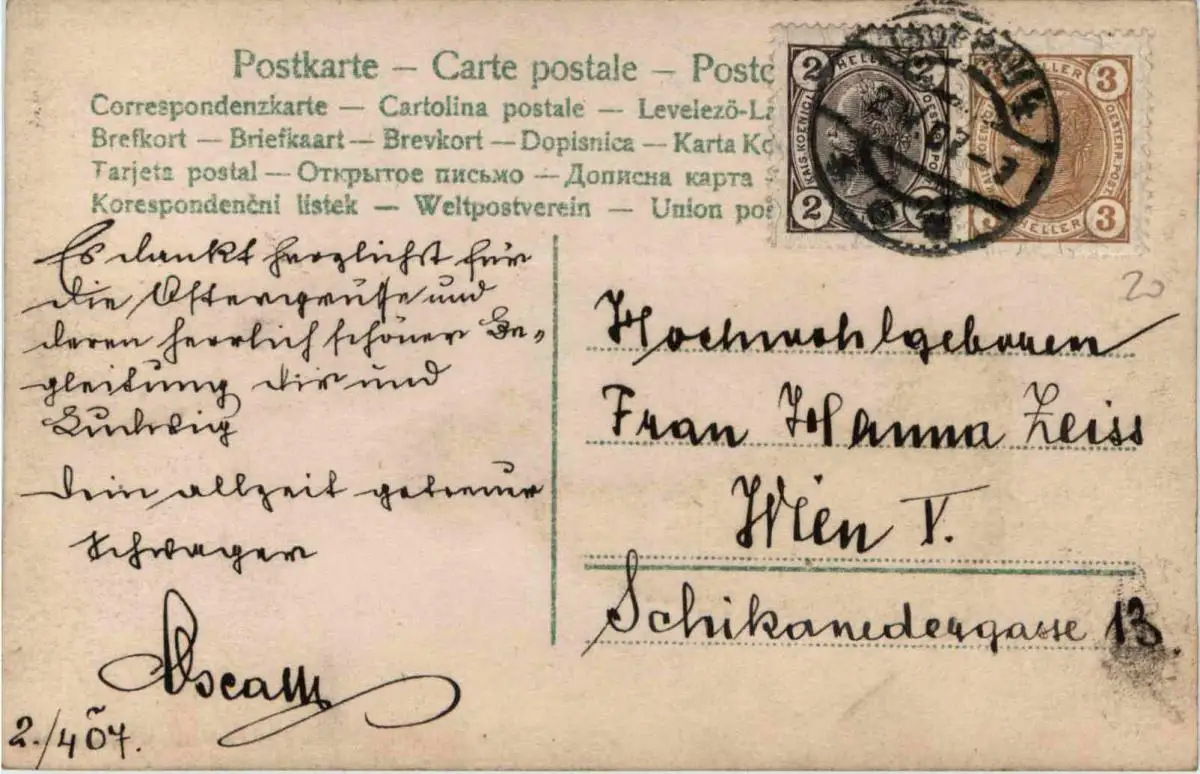 Postkarte – Carte postale – Postc
Correspondenzkarte – Cartolina postale – Levelező-La
Brefkort – Briefkaart – Brevkort – Dopisnica – Karta Ko
Tarjeta postal – Открытое письмо – Дописна карта
Korespondenční listek – Weltpostverein – Union pos
2 HELLER 2
KAIS.KOENIGL.
2
3 HELLER 3
OESTERR.POST
3 HELLER 3
20
Es dankt herzlichst für
die Ostergrüsse und
deren herrlich schöner Be-
gleitung Dir und
Ludwig
Dein allzeit getreuer
Schwager
2./4 07.
Hochwohlgeboren
Frau Hanna Zeiss
Wien V.
Schikanedergasse 13.